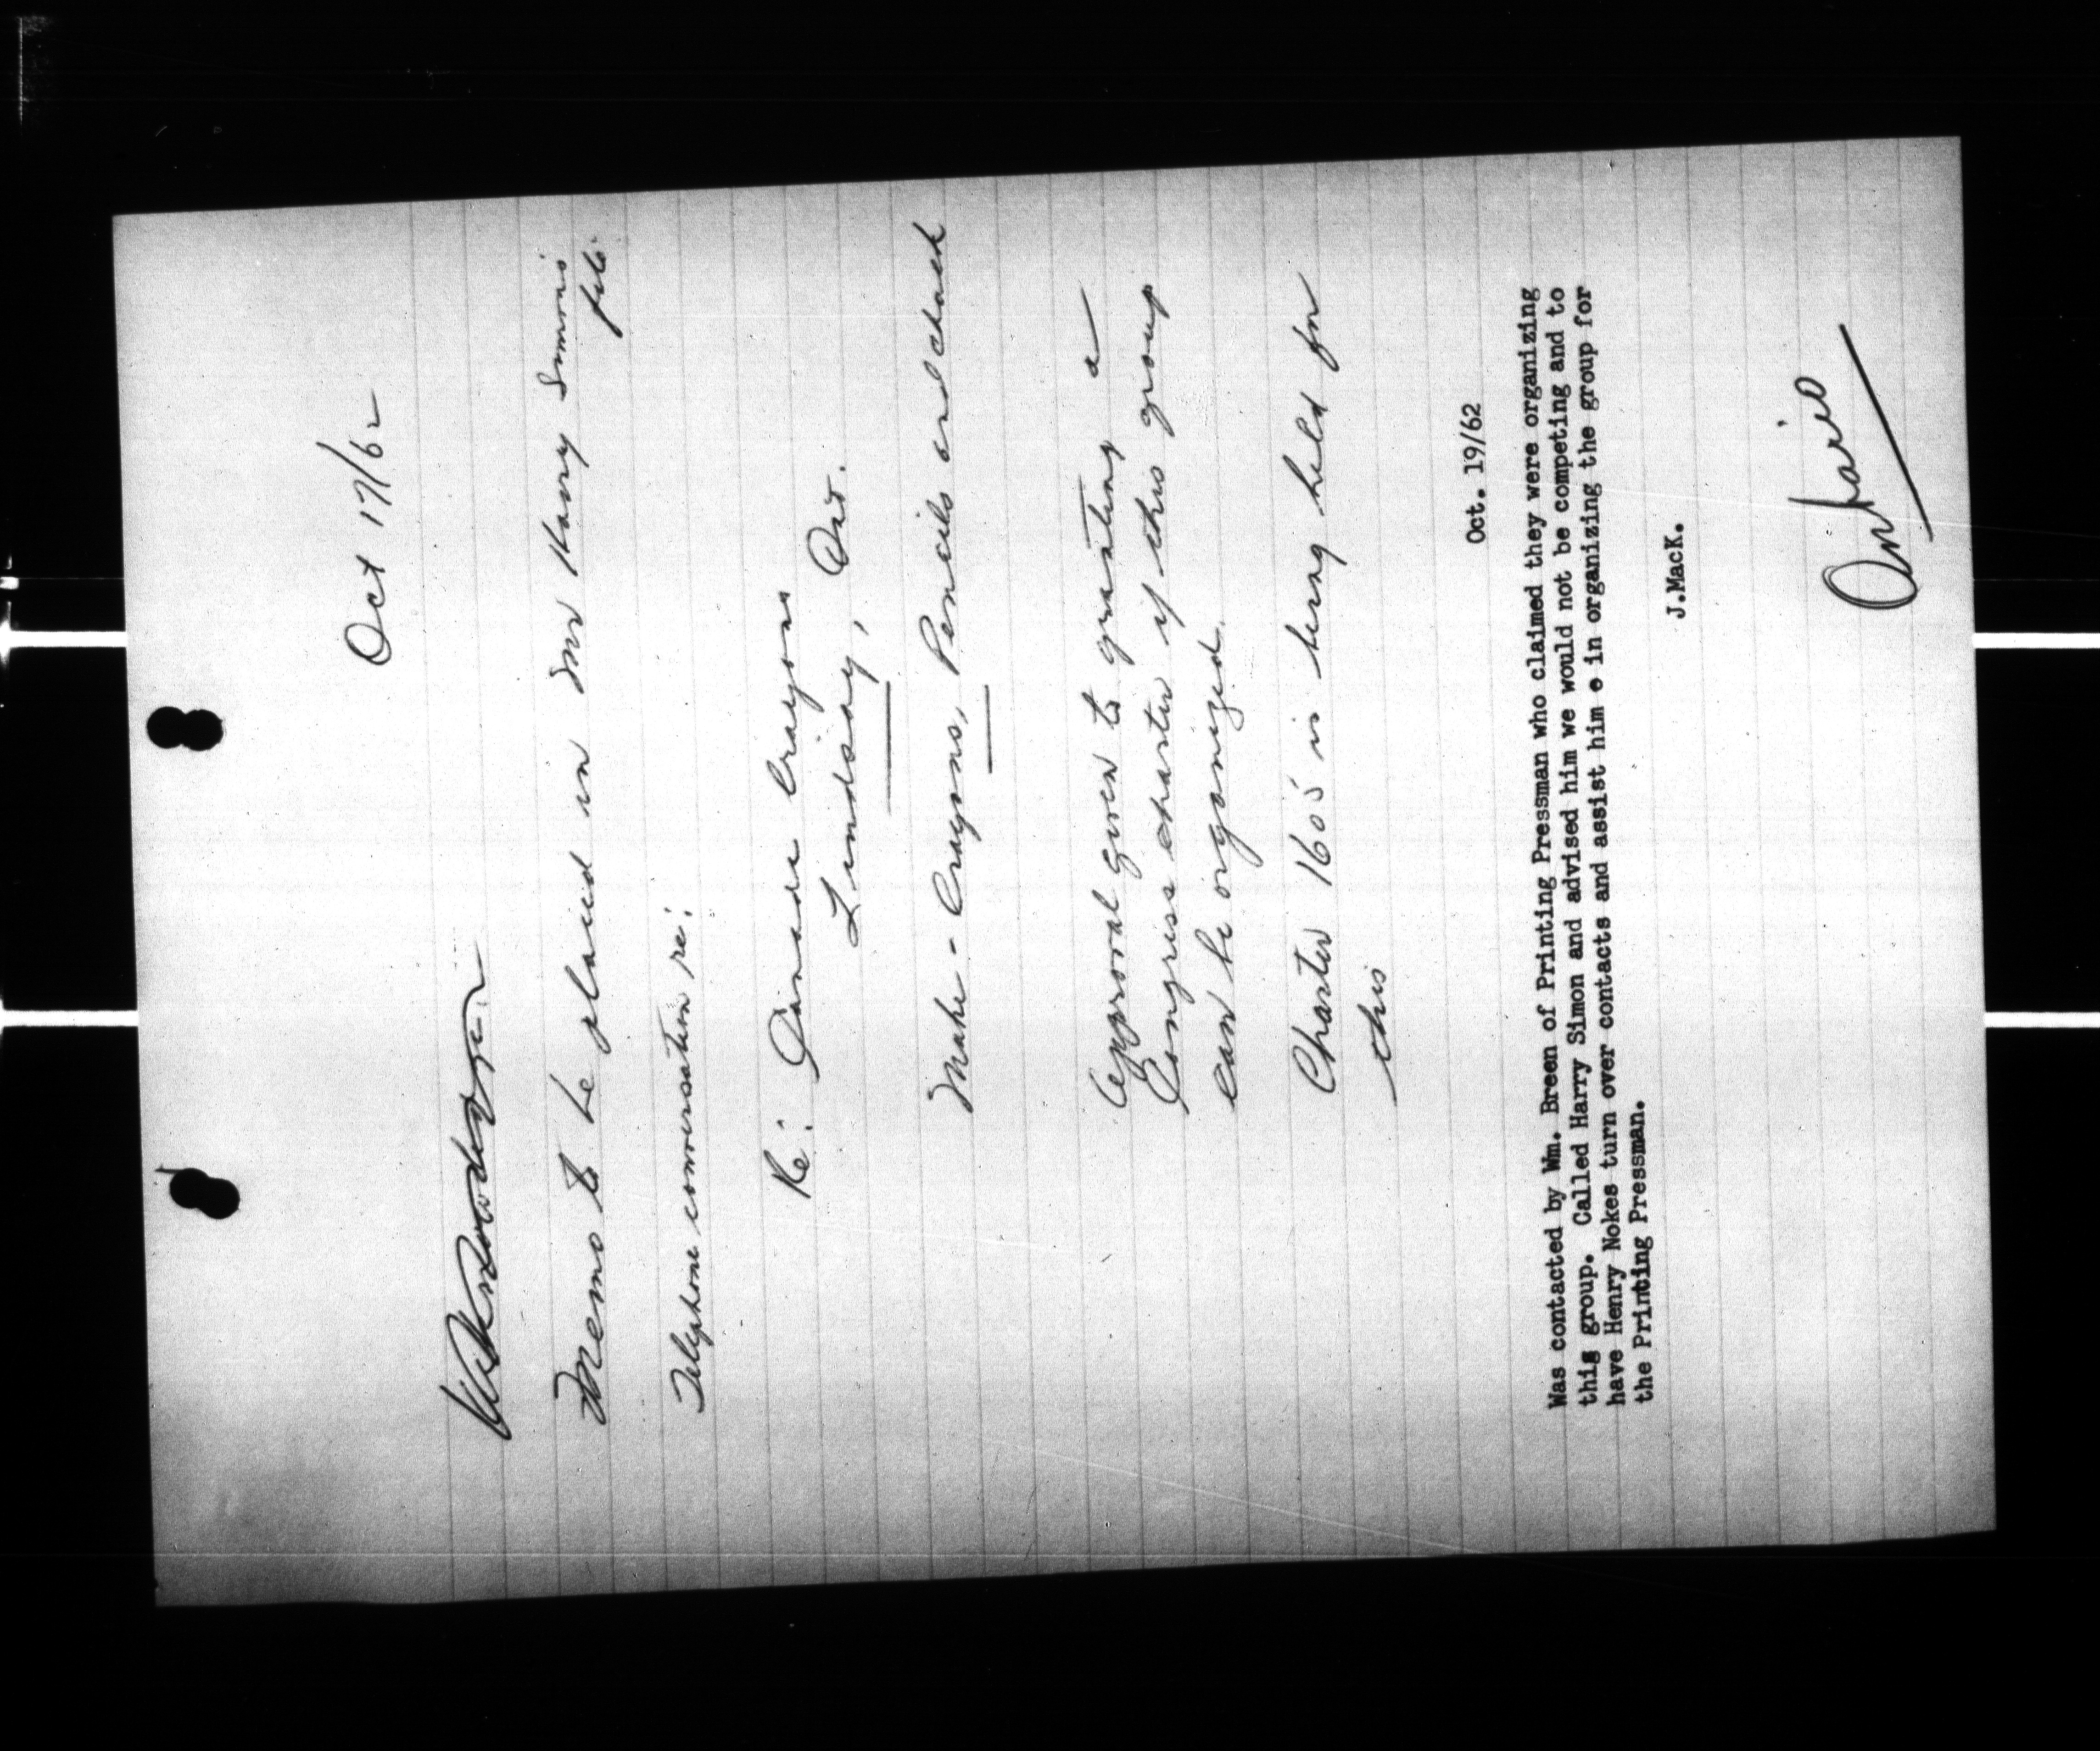 Oct 17/62
Memo to be placed in Mr Harry Simon's
file.
Telephone conversation re:
Re: Crayons
Lindsay, Ont.
Make - Crayons, Pencils and chalk
Approval given to granting a
Congress charter if this group
can be organized.
Charter 1605 is being held for
this
Oct. 19/62
Was contacted by Wm. Breen of Printing Pressman who claimed they were organizing
this group. Called Harry Simon and advised him we would not be competing and to
have Henry Nokes turn over contacts and assist him e in organizing the group for
the Printing Pressman.
J.MacK.
Ontario